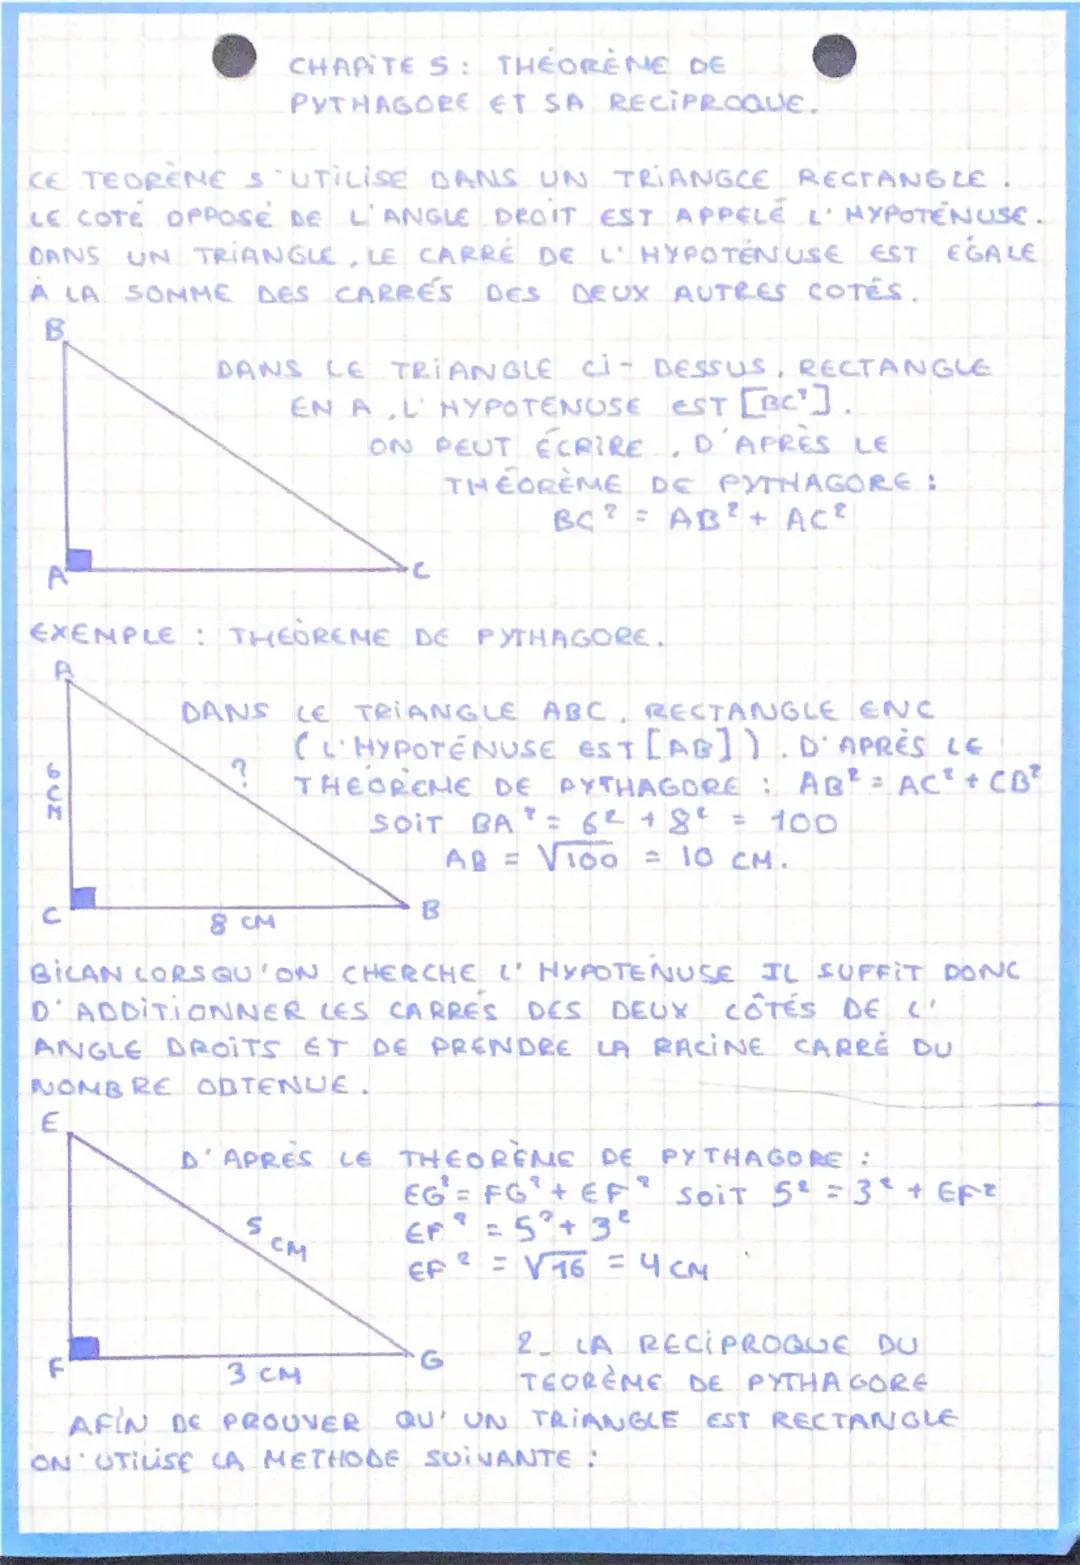 CHAPITE 5: THÉORÈME DE
PYTHAGORE ET SA RECIPROQUE.
CE TEORÈME S'UTILISE DANS UN TRIANGLE RECTANGLE.
LE COTÉ OPPOSÉ DE L'ANGLE DROIT EST APPELÉ L'HYPOTÉNUSE.
DANS UN TRIANGLE, LE CARRÉ DE L'HYPOTÉNUSE EST ÉGALE
À LA SOMME DES CARRÉS DES DEUX AUTRES COTÉS.
B
DANS LE TRIANGLE CI-DESSUS, RECTANGLE
EN A, L'HYPOTENUSE EST [BC²].
ON PEUT ÉCRIRE, D'APRÈS LE
THÉORÈME DE PYTHAGORE :
BC² = AB² + AC²
A
C
EXEMPLE : THEOREME DE PYTHAGORE.
A
DANS LE TRIANGLE ABC, RECTANGLE EN C
(L'HYPOTÉNUSE EST [AB]). D'APRÈS LE
6 CM
?
THEORÈME DE PYTHAGORE : AB² = AC² + CB²
SOIT BA² = 6² + 8² = 100
AB = √100 = 10 CM.
C
8 CM
B
BILAN LORSQU'ON CHERCHE L'HYPOTENUSE IL SUFFIT DONC
D'ADDITIONNER LES CARRÉS DES DEUX CÔTÉS DE L'
ANGLE DROITS ET DE PRENDRE LA RACINE CARRÉ DU
NOMBRE OBTENUE.
E
D'APRÈS LE THEORÈME DE PYTHAGORE :
EG² = FG² + EF² SOIT 5² = 3² + EF²
5 CM
EF² = 5² + 3²
EF² = √16 = 4 CM
F
3 CM
G
2_ LA RECIPROQUE DU
TEORÈME DE PYTHAGORE
AFIN DE PROUVER QU'UN TRIANGLE EST RECTANGLE
ON UTILISE LA METHODE SUIVANTE :